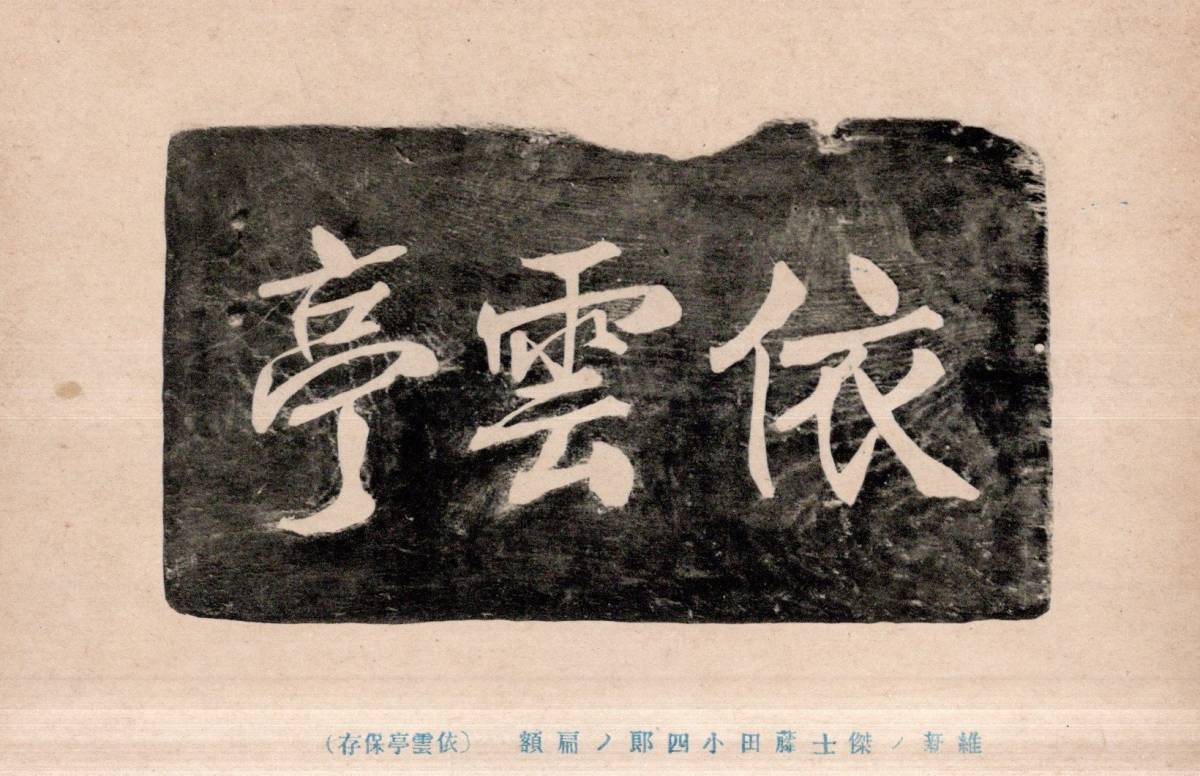 依雲亭
維新ノ傑士藤田小四郎ノ扁額 (依雲亭保存)